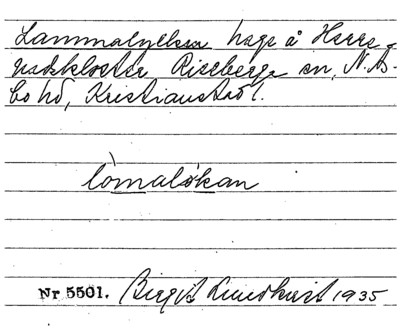 Lammalyckan hage å Herre-
vadskloster Riseberga sn, N. Ås-
bo hd, Kristianstad l.
lòmalökan
Nr 5501. Birgit Lundkvist 1935